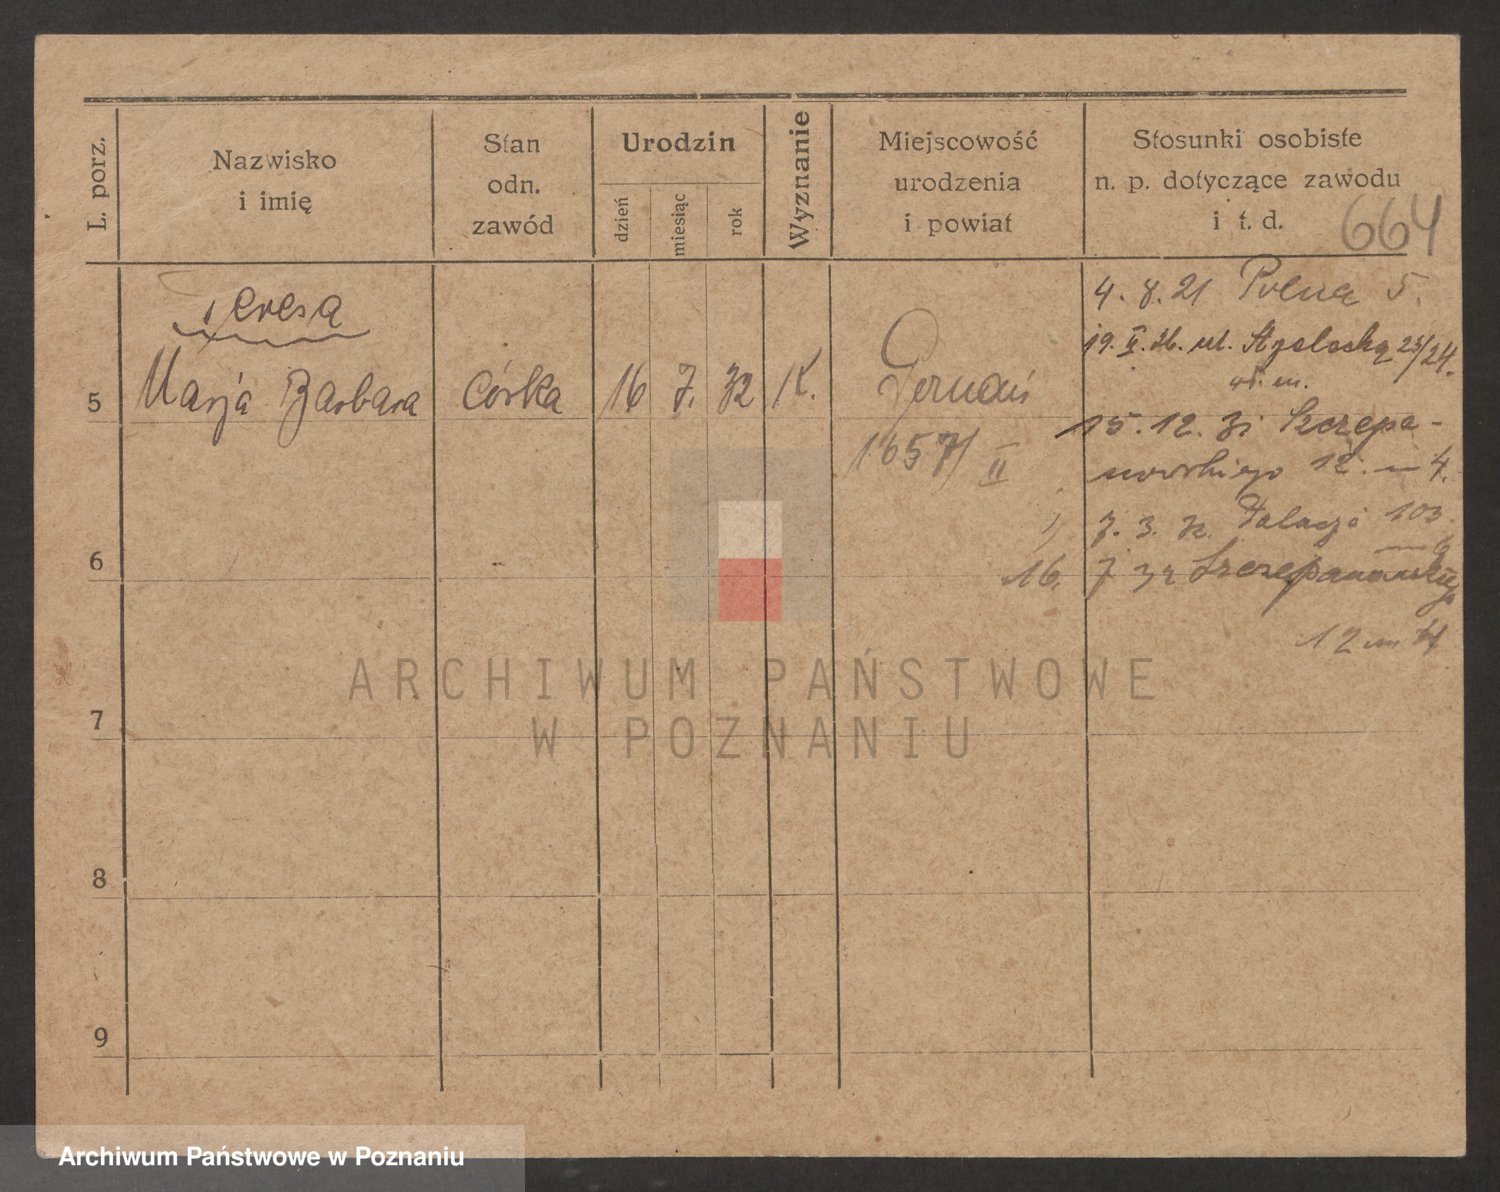 L. porz.
Nazwisko
i imię
Stan
odn.
zawód
Urodzin
dzień
miesiąc
rok
Wyznanie
Miejscowość
urodzenia
i powiat
Stosunki osobiste
n. p. dotyczące zawodu
i t. d.
664
Teresa
5 Marja Barbara córka 16 7. 32 K. Poznań
1657/II
4. 8. 21 Polna 5.
19. 26. ul. 23/24.
15. 12. 31 Szczepa-
nowskiego 12. m 4.
7. 3. 32. 103.
16. 7 32 Szczepanowskiego
12 m 4
6
7
8
9
ARCHIWUM PAŃSTWOWE
W POZNANIU
Archiwum Państwowe w Poznaniu